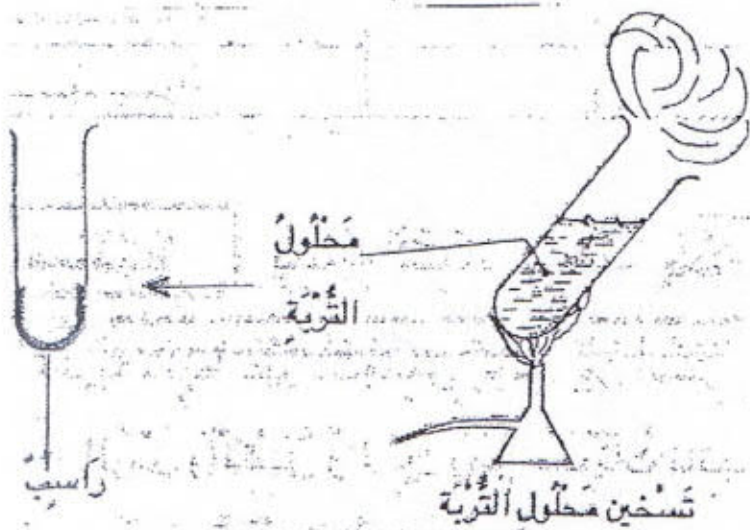 مَحْلُولُ
التُّرْبَةِ
رَاسِبٌ
تَسْخين مَحْلُولِ التُّرْبَة